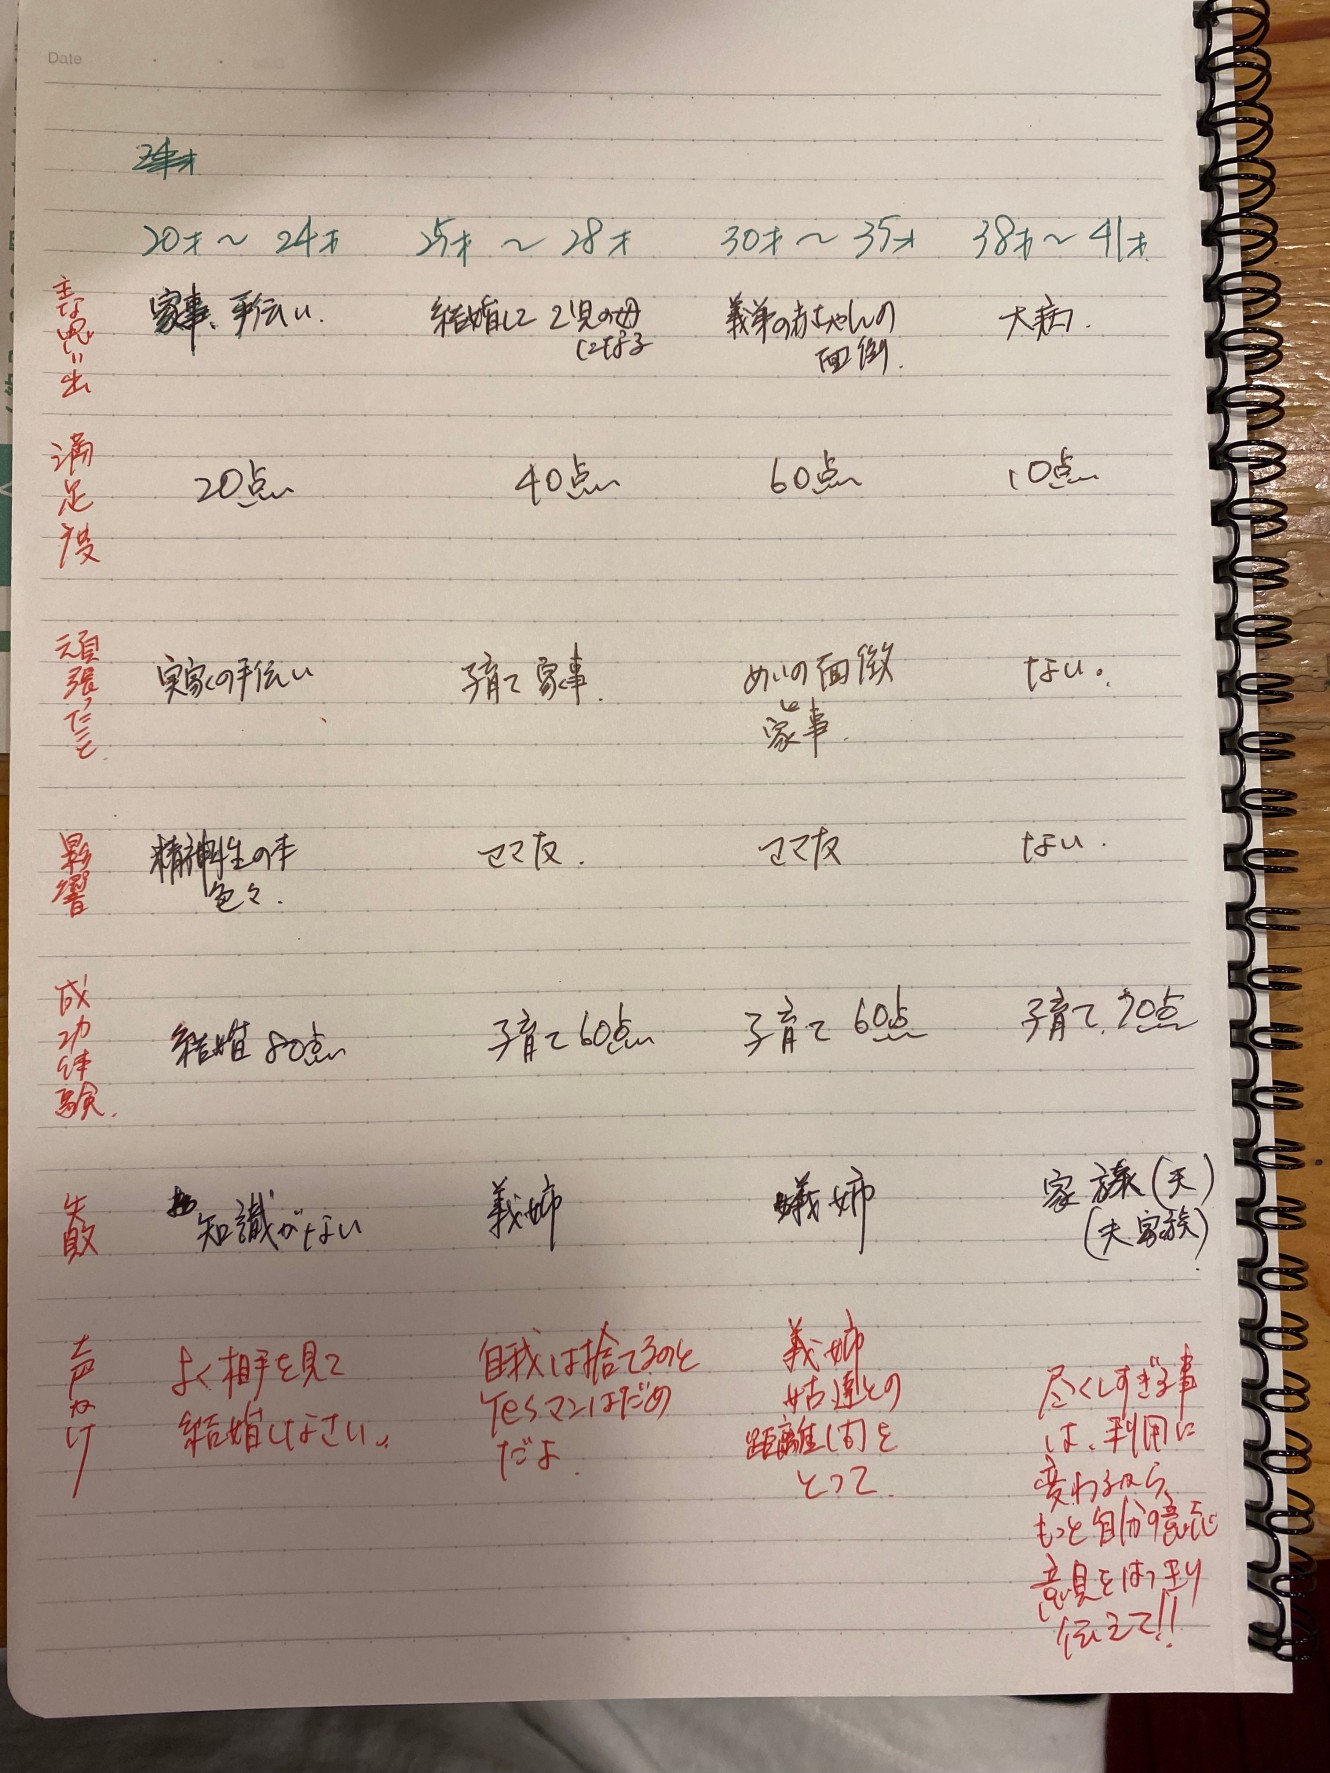 Date
20才〜24才 25才〜28才 30才〜35才 38才〜41才
主な思い出 家事、手伝い. 結婚して2児の母になる 義弟の赤ちゃんの面倒. 大病.
満足度 20点 40点 60点 10点
頑張ったこと. 実家の手伝い 子育て家事. めいの面倒と家事. ない。
影響 精神性の本色々. ママ友. ママ友 ない.
成功体験. 結婚 80点 子育て60点 子育て60点 子育て.70点
失敗 知識がない 義姉 義姉 家族(夫)(夫家族)
声かけ
よく相手を見て
結婚しなさい。
自我は捨てるのと
Yesマンはだめ
だよ.
義姉
姑達との
距離(間)を
とって.
尽くしすぎる事
は、利用に
変わるから、
もっと自分の意志
意見をはっきり
伝えて!!